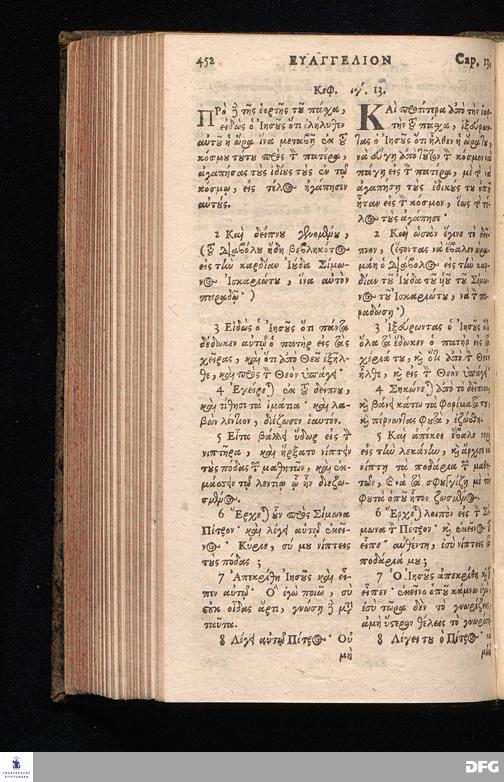 452 ΕΥΑΓΓΕΛΙΟΝ Cap. 13.
Κεφ. ιγ΄. 13.
ΠΡὸ ἢ τῆς ἑορτῆς τοῦ πάχα,
εἰδὼς ὁ Ἰησοῦς ὅτι ἐλήλυθεν
αὐτοῦ ἡ ὥρα ἵνα μεταβῇ ἐκ τοῦ
κόσμου τούτου πρὸς τὸν πατέρα,
ἀγαπήσας τοὺς ἰδίους τοὺς ἐν τῷ
κόσμῳ, εἰς τέλος ἠγάπησεν
αὐτούς.
2 Καὶ δείπνου γενομένου,
(τοῦ Διαβόλου ἤδη βεβληκότος
εἰς τὴν καρδίαν Ἰούδα Σίμω-
νος Ἰσκαριώτου, ἵνα αὐτὸν
παραδῷ· )
3 Εἰδὼς ὁ Ἰησοῦς ὅτι πάντα
δέδωκεν αὐτῷ ὁ πατὴρ εἰς τὰς
χεῖρας, καὶ ὅτι ἀπὸ Θεοῦ ἐξῆλ-
θε, καὶ πρὸς τὸν Θεὸν ὑπάγει·
4 Ἐγείρεται ἐκ τοῦ δείπνου,
καὶ τίθησι τὰ ἱμάτια· καὶ λα-
βὼν λέντιον, διέζωσεν ἑαυτόν.
5 Εἶτα βάλλει ὕδωρ εἰς τὸν
νιπτῆρα, καὶ ἤρξατο νίπτειν
τοὺς πόδας τῶν μαθητῶν, καὶ ἐκ-
μάσσειν τῷ λεντίῳ ᾧ ἦν διεζω-
σμένος.
6 Ἔρχεται οὖν πρὸς Σίμωνα
Πέτρον· καὶ λέγει αὐτῷ ἐκεῖ-
νος· Κύριε, σύ μου νίπτεις
τοὺς πόδας ;
7 Ἀπεκρίθη Ἰησοῦς καὶ εἶ-
πεν αὐτῷ· Ὃ ἐγὼ ποιῶ, σὺ
οὐκ οἶδας ἄρτι, γνώσῃ δὲ μετὰ
ταῦτα.
8 Λέγει αὐτῷ Πέτρος· Οὐ
μὴ
ΚΑὶ προτίτερα ἀπὸ τὴν
τὴν τοῦ πάχα,
ὁ Ἰησοῦς ὅτι ἦλθεν ἡ ὥρα του,
νὰ εὔγῃ ἀπὸ τοῦτον τὸν κόσμον
πάγῃ εἰς τὸν πατέρα, μὲ τὸ
ἀγαπήσῃ τοὺς ἐδικούς του
ἦταν εἰς τὸν κόσμον, ἕως
λος τοὺς ἀγάπησε·
2 Καὶ ὡσὰν ἔγινε τὸ δεῖ-
πνον, (ἔσοντας νὰ ἔβαλεν
ὁ Διάβολος εἰς τὴν καρ-
δίαν τοῦ Ἰούδα τοῦ υἱοῦ τοῦ Σίμω-
νος τοῦ Ἰσκαριώτου, νὰ τὸν πα-
ραδώσῃ· )
3 Ἠξεύρωντας ὁ Ἰησοῦς
ὅλα τὰ ἔδωκεν ὁ πατὴρ εἰς τὰ
χέριά του, καὶ ὅτι ἀπὸ τὸν Θεὸν
ἦλθε, καὶ εἰς τὸν Θεὸν ὑπάγει·
4 Σηκώνεται ἀπὸ τὸ δεῖπνον,
καὶ βάνει κάτω τὰ φορέματά του·
5 Καὶ ἀπέκει ἔβαλε
εἰς τὴν λεκάνην, καὶ
νίπτῃ τὰ ποδάρια τῶν μαθη-
τῶν, καὶ νὰ τὰ σφογγίζῃ μὲ
ὁποῦ ἦτον ζωσμένος.
6 Ἔρχεται λοιπὸν εἰς τὸν Σί-
μωνα τὸν Πέτρον· καὶ ἐκεῖνος
εἶπε· αὐθέντη, ἐσὺ νίπτεις
ποδάριά μου;
7 Ὁ Ἰησοῦς ἀπεκρίθη καὶ
εἶπεν· ἐκεῖνο ὁποῦ κάμνω ἐγὼ
ἐσὺ τῶρα δὲν τὸ γνωρίζεις
ἀμὴ ὕστερον θέλεις τὸ γνωρίσῃ
8 Λέγει του ὁ Πέτρος·
DFG